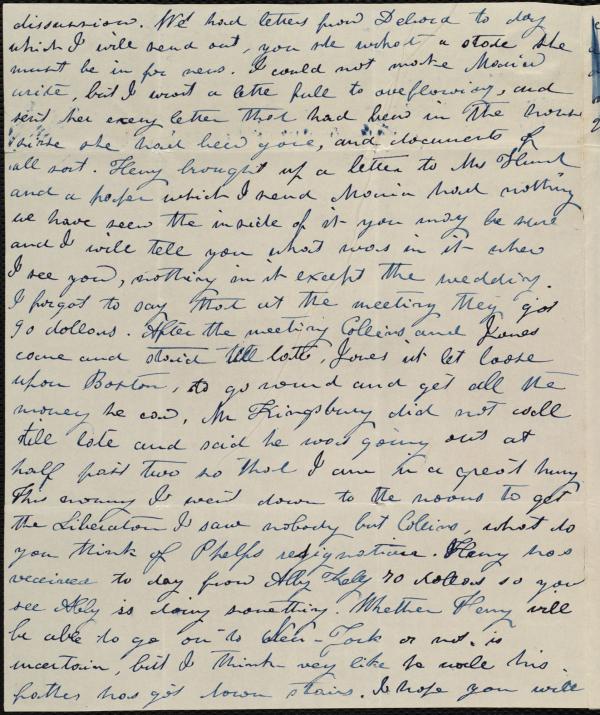 discussion. We had letters from Debora to day
which I will send out, you see what a state she
must be in for news. I could not make Maria
write, but I wrote a lette full to overflowing, and
sent her every letter that had been in the house
since she had been gone, and documents of
all sort. Henry brought up a letter to Ms
and a paper which I send Maria had nothing
we have seen the inside of it you may be sure
and I will tell you what was in it when
I see you, nothing in it except the wedding.
I forgot to say that at the meeting they got
90 dollars. After the meeting Collins and Jones
came and staid till late, Jones is let loose
upon Boston, to go round and get all the
money he can, Mr Kingsbury did not call
till late and said he was going out at
half past two so that I am in a great hurry
This morning I went down to the rooms to get
the Liberators I saw nobody but Collins, what do
you think of Phelps resignation. Henry has
received to day from Abby Kelly 70 dollars so you
see Abby is doing something. Whether Henry will
be able to go on to New-York or not, is
uncertain, but I think very like he will his
father has got down stairs. I hope you will